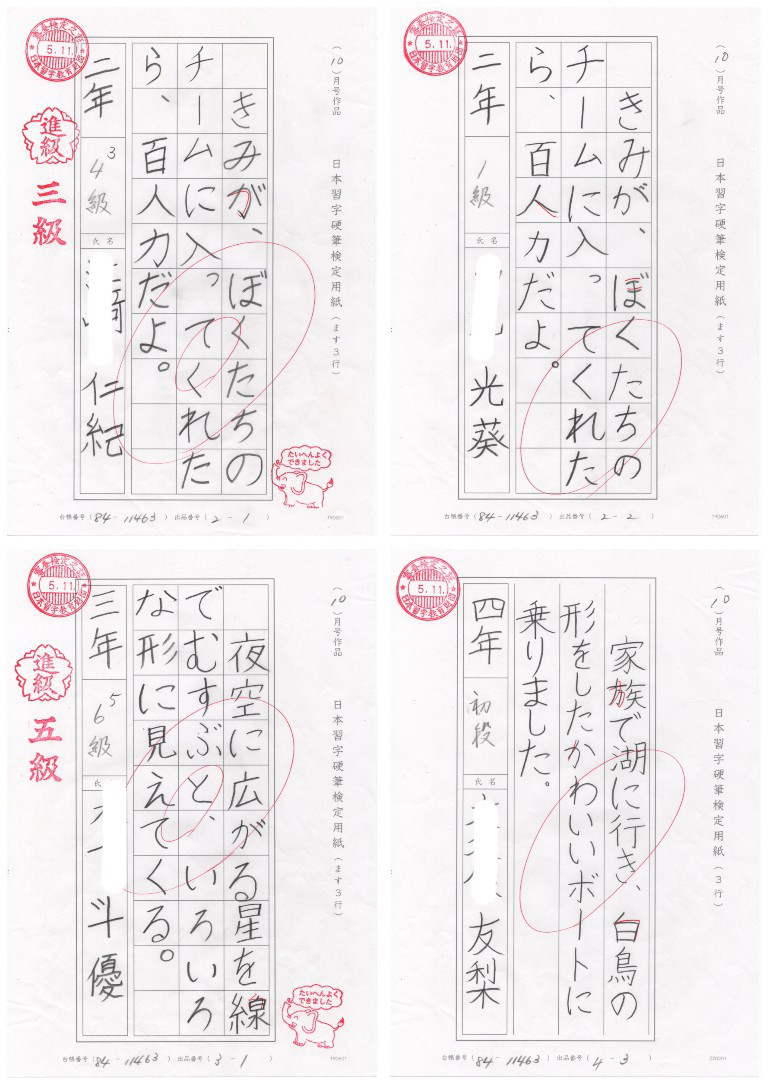 (10)月号作品
日本習字硬筆検定用紙(ます3行)
きみが、ぼくたちの
チームに入ってくれた
ら、百人力だよ。
二年
4 3
級
氏名
仁紀
5.11.
日本習字教育財団
進級
三級
たいへんよく
できました
台帳番号(84-11463) 出品番号(2-1)
190601
(10)月号作品
日本習字硬筆検定用紙(ます3行)
きみが、ぼくたちの
チームに入ってくれた
ら、百人力だよ。
二年
1級
氏名
光葵
5.11.
日本習字教育財団
台帳番号(84-11463) 出品番号(2-2)
190601
(10)月号作品
日本習字硬筆検定用紙(ます3行)
夜空に広がる星を線
でむすぶと、いろいろ
な形に見えてくる。
三年
6 5
級
斗優
5.11.
日本習字教育財団
進級
五級
たいへんよく
できました
台帳番号(84-11463) 出品番号(3-1)
190601
(10)月号作品
日本習字硬筆検定用紙(3行)
家族で湖に行き、白鳥の
形をしたかわいいボートに
乗りました。
四年
初段
氏名
友梨
5.11.
日本習字教育財団
台帳番号(84-11463) 出品番号(4-3)